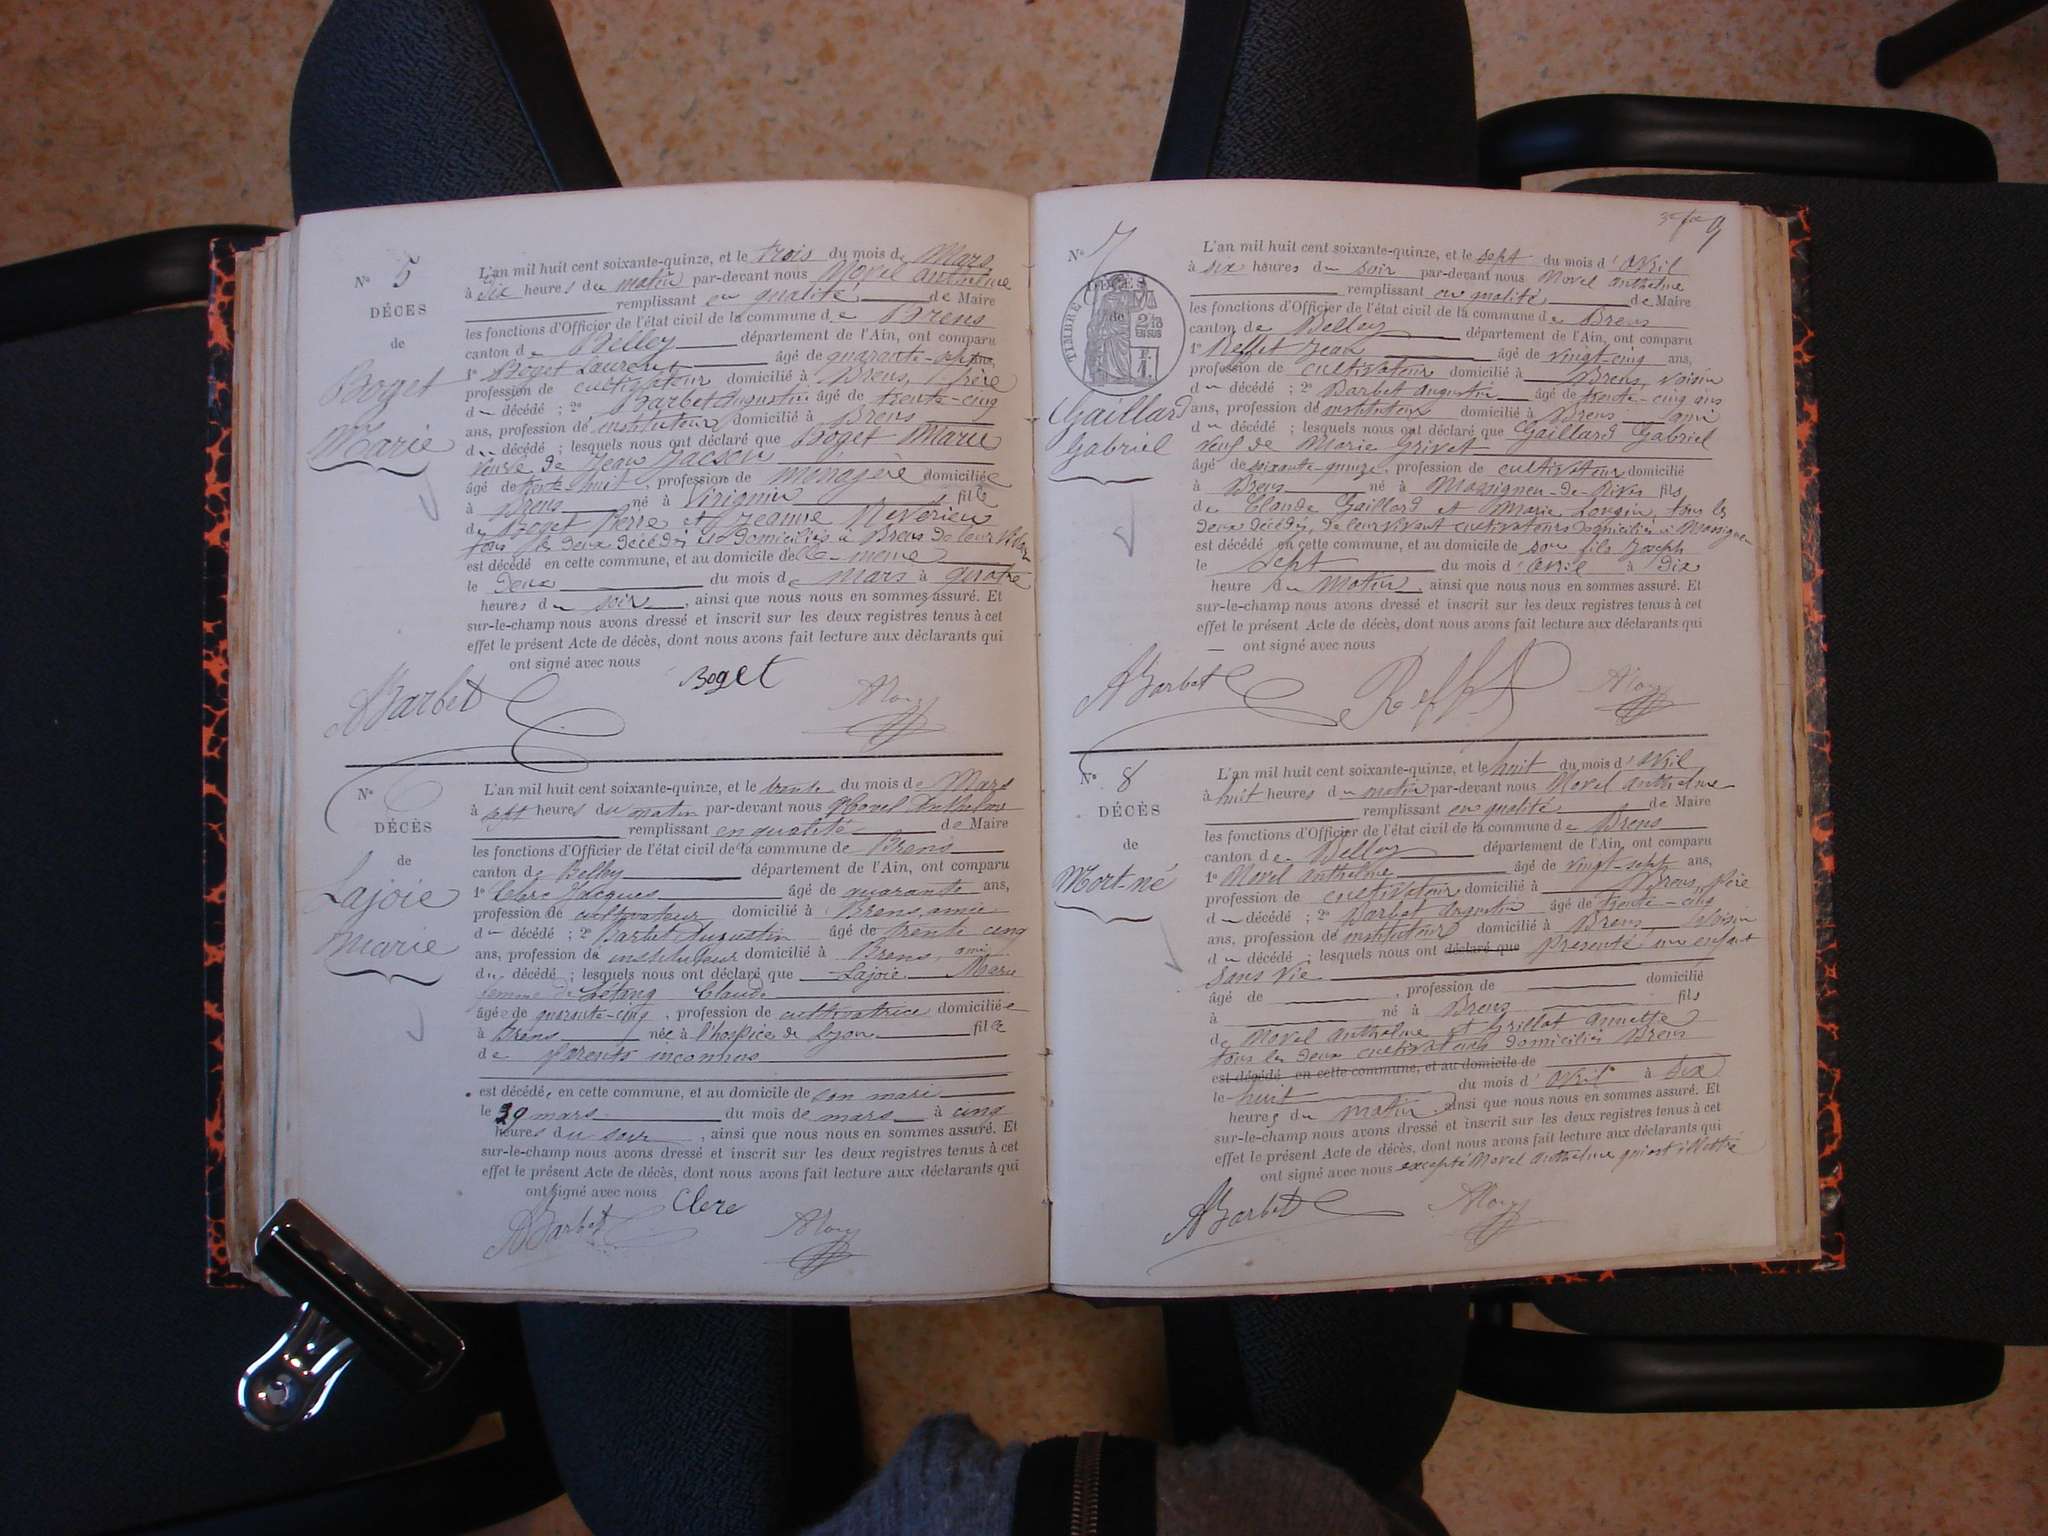 No 5
DÉCÈS
de
Boget
Marie
L'an mil huit cent soixante-quinze, et le trois du mois de Mars
à six heures du matin par-devant nous Morel anthelme
remplissant en qualité de Maire
les fonctions d'Officier de l'état civil de la commune de Brens
canton de Belley département de l'Ain, ont comparu
1º Boget Laurent âgé de quarante-sept ans,
profession de cultivateur domicilié à Brens, frère
du décédé ; 2º Barbet Augustin âgé de trente-cinq
ans, profession de instituteur domicilié à Brens
d décédé ; lesquels nous ont déclaré que Boget Marie
veuve de Jean
âgé de trente-huit, profession de ménagère domiciliée
à Brens né à Virignin fille
de Boget Pierre et Jeanne
tous les deux décédés domiciliés à Brens de leur vivant
est décédé en cette commune, et au domicile de elle-même
le deux du mois de mars à quatre
heures du soir, ainsi que nous nous en sommes assuré. Et
sur-le-champ nous avons dressé et inscrit sur les deux registres tenus à cet
effet le présent Acte de décès, dont nous avons fait lecture aux déclarants qui
ont signé avec nous
ABarbet Boget
No
DÉCÈS
de
Lajoie
Marie
L'an mil huit cent soixante-quinze, et le trente du mois de Mars
à sept heures du matin par-devant nous Morel Anthelme
remplissant en qualité de Maire
les fonctions d'Officier de l'état civil de la commune de Brens
canton de Belley département de l'Ain, ont comparu
1º Clerc Jacques âgé de quarante ans,
profession de cultivateur domicilié à Brens, amie
du décédé ; 2º Barbet Augustin âgé de trente cinq
ans, profession de instituteur domicilié à Brens, ami
d décédé ; lesquels nous ont déclaré que Lajoie Marie
femme de Claude
âgée de quarante-cinq, profession de cultivatrice domiciliée
à Brens née à l'hospice de Lyon fille
de parents inconnus
est décédé, en cette commune, et au domicile de son mari
le 29 mars du mois de mars à cinq
heures du soir, ainsi que nous nous en sommes assuré. Et
sur-le-champ nous avons dressé et inscrit sur les deux registres tenus à cet
effet le présent Acte de décès, dont nous avons fait lecture aux déclarants qui
ont signé avec nous
ABarbet Clerc
9
No 7
DÉCÈS
de
TIMBRE
Gaillard
Gabriel
L'an mil huit cent soixante-quinze, et le sept du mois d'avril
à six heures du soir par-devant nous Morel anthelme
remplissant en qualité de Maire
les fonctions d'Officier de l'état civil de la commune de Brens
canton de Belley département de l'Ain, ont comparu
1º Reffet Jean âgé de vingt-cinq ans,
profession de cultivateur domicilié à Brens, voisin
du décédé ; 2º Barbet augustin âgé de trente-cinq ans
ans, profession de instituteur domicilié à Brens ami
du décédé ; lesquels nous ont déclaré que Gaillard Gabriel
veuf de Marie Grivet
âgé de soixante-quinze, profession de cultivateur domicilié
à Brens né à Massigneu-de-Rives fils
de Claude Gaillard et Marie tous les
deux décédés de leur vivant cultivateurs domiciliés à Massigneu
est décédé en cette commune, et au domicile de son fils Joseph
le sept du mois d'avril à dix
heure du matin, ainsi que nous nous en sommes assuré. Et
sur-le-champ nous avons dressé et inscrit sur les deux registres tenus à cet
effet le présent Acte de décès, dont nous avons fait lecture aux déclarants qui
ont signé avec nous
ABarbet Reffet
No 8
DÉCÈS
de
Mort-né
L'an mil huit cent soixante-quinze, et le huit du mois d'avril
à huit heures du matin par-devant nous Morel anthelme
remplissant en qualité de Maire
les fonctions d'Officier de l'état civil de la commune de Brens
canton de Belley département de l'Ain, ont comparu
1º Morel anthelme âgé de vingt-sept ans,
profession de cultivateur domicilié à Brens, père
du décédé ; 2º Barbet augustin âgé de trente-cinq
ans, profession de instituteur domicilié à Brens voisin
du décédé ; lesquels nous ont déclaré que présenté un enfant
sans vie
âgé de , profession de domicilié
à né à Brens fils
de Morel anthelme et Grillat annette
tous les deux cultivateurs domiciliés Brens
est décédé en cette commune, et au domicile de
le huit du mois d'avril à six
heures du matin, ainsi que nous nous en sommes assuré. Et
sur-le-champ nous avons dressé et inscrit sur les deux registres tenus à cet
effet le présent Acte de décès, dont nous avons fait lecture aux déclarants qui
ont signé avec nous excepté Morel anthelme qui est illettré
ABarbet